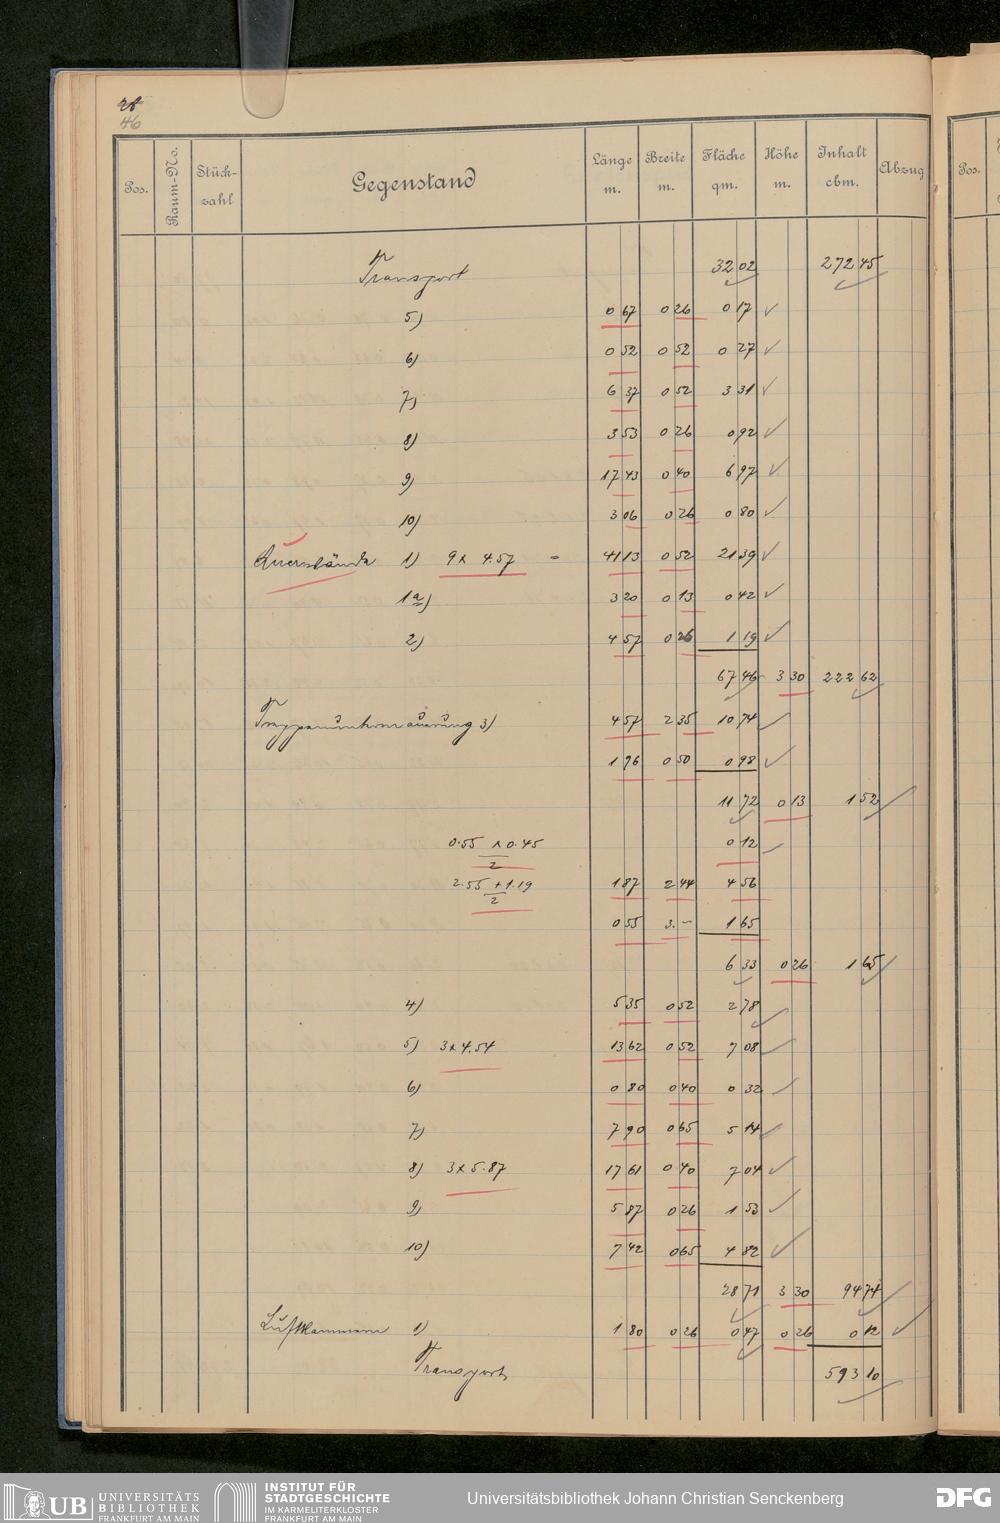 46
Pos. Raum-No. Stück-zahl Gegenstand Länge m. Breite m. Fläche qm. Höhe m. Inhalt cbm. Abzug Pos.
Transport 32 02 272 45
5) 0 67 0 26 0 17
6) 0 52 0 52 0 27
7) 6 37 0 52 3 31
8) 3 53 0 26 0 92
9) 17 43 0 40 6 97
10) 3 06 0 26 0 80
Querwände 1) 9 x 4.57 = 41 13 0 52 21 39
1a) 3 20 0 13 0 42
2) 4 57 0 26 1 19
67 46 3 30 222 62
Treppenuntermauerung 3) 4 57 2 35 10 74
1 96 0 50 0 98
11 72 0 13 1 52
0.55 x 0.45 / 2 0 12
2.55 + 1.19 / 2 1 87 2 44 4 56
0 55 3.- 1 65
6 33 0 26 1 65
4) 5 35 0 52 2 78
5) 3 x 4.54 13 62 0 52 7 08
6) 0 80 0 40 0 32
7) 7 90 0 65 5 14
8) 3 x 5.87 17 61 0 40 7 04
9) 5 87 0 26 1 53
10) 7 42 0 65 4 82
28 71 3 30 94 74
Luftkammern 1) 1 80 0 26 0 47 0 26 0 12
Transport 593 10
UB UNIVERSITÄTS BIBLIOTHEK FRANKFURT AM MAIN
INSTITUT FÜR STADTGESCHICHTE IM KARMELITERKLOSTER FRANKFURT AM MAIN
Universitätsbibliothek Johann Christian Senckenberg
DFG